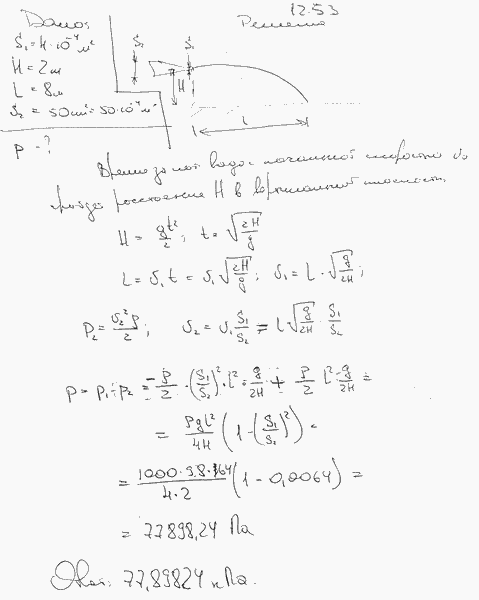 12.53
Дано: Решение
S₁ = 4·10⁻⁴ м²
H = 2 м
L = 8 м
S₂ = 50 см² = 50·10⁻⁴ м²
p - ?
S₂ S₁
H
l
Время за кот вода с начальной скоростью υ₀
пройдёт расстояние H в вертикальной плоскости.
H = gt²/2; t = √(2H/g)
L = υ₁t = υ₁√(2H/g); υ₁ = L·√(g/2H);
P₂ = υ₂²ρ/2; υ₂ = υ₁ S₁/S₂ = l√(g/2H) · S₁/S₂
p = p₁ ÷ p₂ = -ρ/2 · (S₁/S₂)² · l² · g/2H + ρ/2 l² · g/2H =
= ρgl²/4H (1 - (S₁/S₂)²) =
= 1000·9.8·64/4·2 (1 - 0,0064) =
= 77898,24 Па
Ответ: 77,89824 кПа.